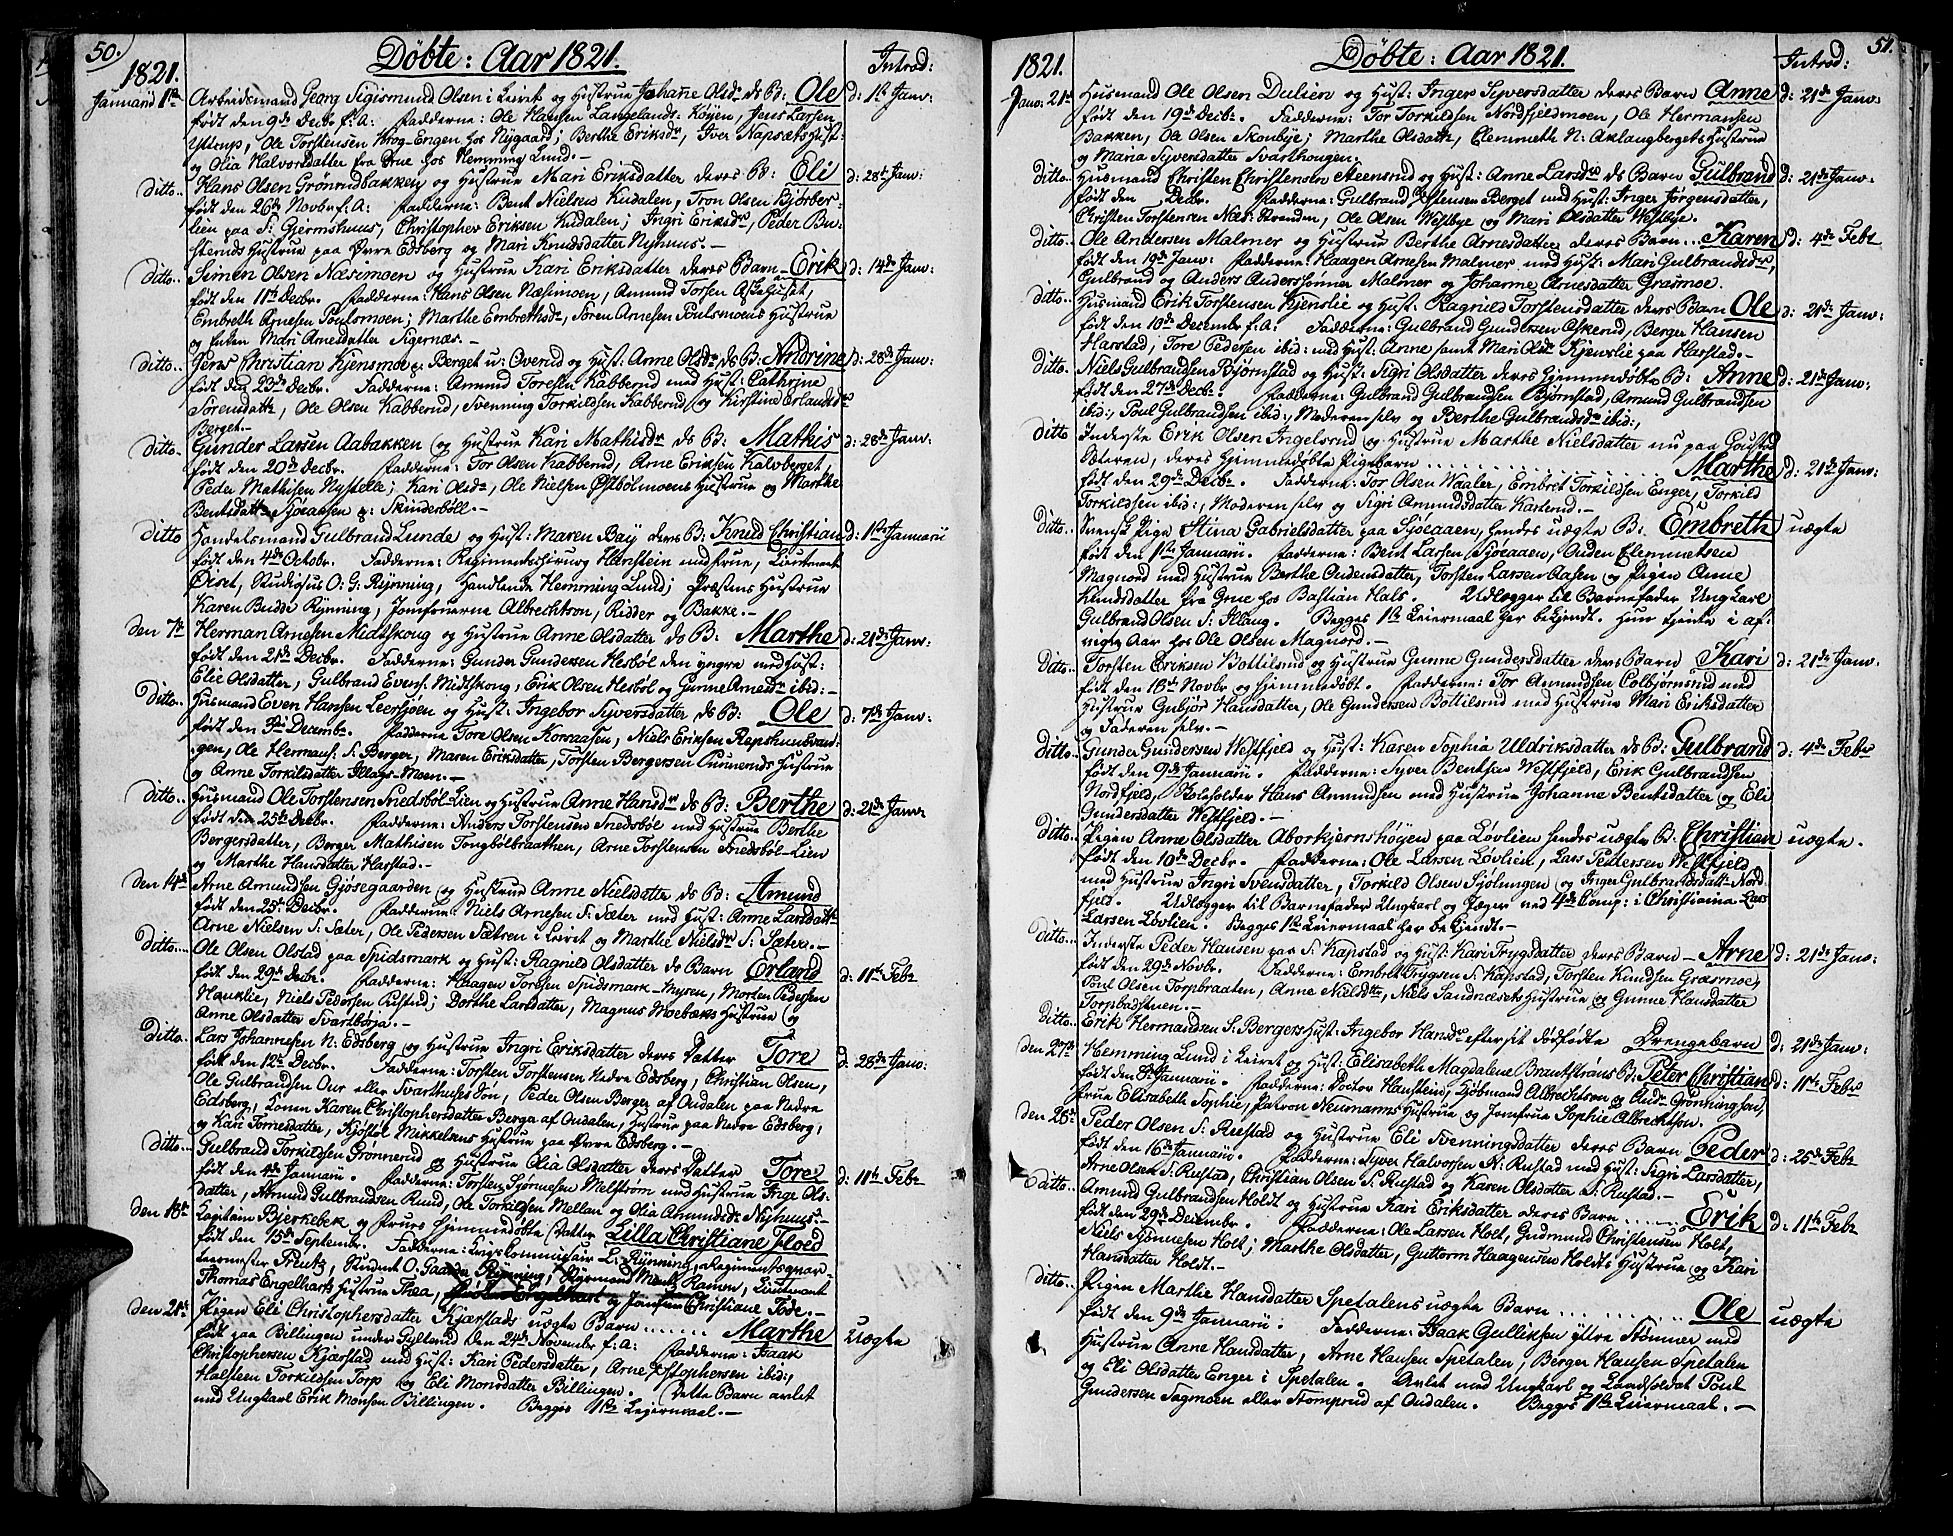 50.
Döbte: Aar 1821.
Introd:
1821.
Januarii 1ste Arbeidsmand Georg Sigismund Olsen i Leiret og Hustrue Johane Olsdr ds B: Ole d: 1ste Janv:
født den 9de Decbr f: A: Fadderne: Ole Hansen Langelands-Köyen, Jens Larsen
Yttrup, Ole Torstensen Krog-Engen hos Nygaard; Berthe Eriksdr, Iver Napsæts Hust:
og Olia Halvorsdatter fra Grue hos Hemming Lund.-
Ditto.. Hans Olsen Grönrudbakken og Hustrue Mari Eriksdatter deres B: Eli d: 28de Janv:
født den 26de Novbr f: A: Fadderne: Bent Nielsen Kudalen, Tron Olsen Björber-
lien paa S: Gjermshuus, Christopher Eriksen Kudalen; Ingri Eriksdr, Peder Bu-
steruds Hustrue paa Övre Edsberg og Mari Knudsdatter Nyhuus.-
Ditto.. Simen Olsen Næsmoen og Hustrue Kari Eriksdatter deres Barn - Erik d: 14de Janv:
født den 11te Decbr. Fadderne: Hans Olsen Næsmoen, Amund Torsen Askehuset,
Embreth Arnesen Poulsmoen; Marthe Embrethsdr, Sören Arnesen Poulsmoens Hustrue
og Enken Mari Arnesdatter Sigernæs.-
Ditto.. Jens Christian Kjensmoe p: Berget u: Overud og Hust: Anne Olsdr ds B: Andrine d: 28de Janv:
født den 23de Decbr. Fadderne: Amund Toresen Kabberud med Hust: Cathrine
Sörensdatter, Ole Olsen Kabberud, Svenning Torkildsen Kabberud, og Kirstine Erlandsdr
Berget.-
Ditto.. Gunder Larsen Aabakken og Hustrue Kari Mathisdr ds B: Mathis d: 28de Janv:
født den 20de Decbr. Fadderne: Tor Olsen Kabberud, Arne Eriksen Kalvberget,
Peder Mathisen Nystelle; Kari Olsdr, Ole Nielsen Östbölmoens Hustrue og Marthe
Bentsdatter Sjöeaasen p: Skinderböll.-
Ditto Handelsmand Gulbrand Lunde og Hust: Maren Bay deres B: Knud Christian d: 1ste Januarii
født den 4de Octobr. Fadderne: Regimentschirurg Hanstein med Frue, Lieutnant
Öiset, Studiosus O: G: Rÿnning, Handlende Hemming Lund; Præstens Hustrue
Karen Budde Rÿnning, Jomfruerne Albrechtson, Ridder og Bakke.-
den 7de Herman Arnesen Midtskoug og Hustrue Anne Olsdatter ds B: Marthe d: 21de Janv:
født den 21de Decbr. Fadderne: Gunder Gundersen Hesböl den yngre med Hust:
Elie Olsdatter, Gulbrand Evens. Midtskong, Erik Olsen Hesböl og Gunne Arnesdr ibid:-
Ditto.. Husmand Even Hansen Leersjöen og Hust: Ingebor Syversdatter ds B: Ole d: 7de Janv:
født den 3die Decembr. Fadderne Tore Olsen Korsaasen, Niels Eriksen Repshuusvan-
gen, Ole Hermans. S: Berger, Maren Eriksdatter, Torsten Bergersen Punneruds Hustrue
og Anne Torkilsdatter Illags-Moen.-
Ditto.. Husmand Ole Torstensen Snedsböl-Lien og Hustrue Anne Hansdr ds B: Berthe d: 21de Janv:
født den 25de Decbr. Fadderne: Anders Torstensen Snedsböl med Hustrue Berthe
Bergersdatter, Berger Mathisen Tongbölbraathen, Arne Torstensen Snedsböl-Lien
og Marthe Hansdatter Harstad.-
den 14de Arne Amundsen Gjösegaarden og Hustrue Anne Nielsdatter ds B: Amund
født den 25de Decbr. Fadderne: Niels Arnesen S: Sæter med Hust: Anne Larsdatter
Arne Nielsen S: Sæter, Ole Pedersen Sætren i Leiret og Marthe Nielsdr S: Sæter.-
Ditto... Ole Olsen Olstad paa Spidsmark og Hust: Ragnild Olsdatter ds Barn Erland d: 11te Febr
født den 29de Decbr. Fadderne: Haagen Toresen Spidsmark-Myren, Morten Pedersen
Hauklie, Niels Pedersen Pilstad; Dorthe Larsdatter, Magnus Moebæks Hustrue og
Anne Olsdatter Svartbörja.-
Ditto.. Lars Johannesen N: Edsberg og Hustrue Ingri Eriksdatter deres Datter Tore d: 28de Janv:
født den 12te Decbr. Fadderne: Torsten Torstensen Nedre Edsberg, Christian Olsen,
Ole Gulbrandsen Our eller Svarthusesdön, Peder Olsen Berger af Oudalen paa Nedre
Edsberg, Konen Karen Christophersdatter Berga af Oudalen, Hustrue paa Nedre Edsberg,
og Kari Tomesdatter, Kjöstöl Mikkelsens Hustrue paa Övre Edsberg.-
Ditto.. Gulbrand Torkildsen Grönnerud og Hustrue Olia Olsdatter deres Datter Tore d: 11te Febr
født den 4de Januarii. Fadderne: Torsten Björnesen Melström med Hustrue Inge Ols-
datter, Amund Gulbrandsen Ruud, Ole Torkildsen Mellan og Olia Amundsdr Nyhuus.-
den 18de Kapitain Bjerkebek og Frues Hjemmedöbte Datter Lilla Christiane Floed
født den 15de September. Fadderne: Krigs Commissair L: Rÿnning, Regimentsquar-
teermester Trentz, Student O: Gaarder Rÿnning, Ramm, Lieutnant
Thomas Engelharts Hustrue Thea, og Jomfrue Christiane Tode.-
den 21de Pigen Eli Christophersdatter Kjærstads uægte Barn ....... Marthe uægte
født paa Billingen under Gylterud den 24de November f: A: Fadderne: Isaak
Christophersen Kjærstad med Hust: Kari Pedersdatter, Arne Xstophersen ibid:,
Halsteen Torkildsen Torp og Eli Monsdatter Billingen. Dette Barn avlet
med Ungkarl Erik Monsen Billingen. Begges 1ste Leiermaal.-
51.
Döbte: Aar 1821.
Introd:
1821.
Janv: 21de Husmand Ole Olsen Dulien og Hust: Inger Syversdatter deres Barn Anne d: 21de Janv:
født den 19de Decbr. Fadderne: Tor Torkildsen Nordfjeldmoen, Ole Hermansen
Bakken, Ole Olsen Skonbye; Marthe Olsdatter, Clemmeth N: Aklangbergets Hustrue
og Maria Syversdatter Svarthougen.
Ditto.. Husmand Christen Christensen Steensrud og Hust: Anne Larsdr ds Barn Gulbrand d: 21de Janv:
født den Decbr. Fadderne: Gulbrand Estensen Berget med Hust: Inger Jörgensdatter,
Christen Torstensen Næs-Strenden, Ole Olsen Westbye og Mari Olsdatter Westbye.
Ditto.. Ole Andersen Malmer og Hustrue Berthe Arnesdatter deres Barn... Karen d: 4de Febr
født den 19de Janv: Fadderne: Haagen Arnesen Malmer med Hust: Mari Gulbrandsdr,
Gulbrand og Anders Anderssönner Malmer og Johanne Arnesdatter Grasmoe.
Ditto.. Husmand Erik Torstensen Kjenslie og Hust: Ragnild Torstensdatter deres Barn Ole d: 21de Janv:
født den 10de Decembr f: A: Fadderne: Gulbrand Gundersen Askerud, Berger Hansen
Harstad; Tore Pedersen ibid: med Hust: Anne samt Mari Olsdr Kjenslie paa Harstad.-
Ditto. Niels Gulbrandsen Bjørnstad og Hust: Sigri Olsdatter deres hjemmedöbte B: Anne d: 21de Janv:
født den 27de Decbr. Fadderne: Gulbrand Gulbrandsen Bjørnstad, Amund Gulbrandsen
ibid:, Poul Gulbrandsen ibid:, Moderen selv og Berthe Gulbrandsdr ibid:,
Ditto Inderste Erik Olsen Ingelsrud og Hustrue Marthe Nielsdatter nu paa Goustad
Sæteren, deres Hjemmedöbte Pigebarn .......... Marthe d: 21de Janv:
født den 29de Decbr. Fadderne: Tor Olsen Waaler, Embret Torkildsen Enger, Torkild
Torkildsen ibid:, Moderen selv og Sigri Amundsdatter Karterud.-
Ditto.. Svensk Pige Stina Gabrielsdatter paa Sjöeaaen, hendes uægte B: Embreth uægte
født den 1ste Januarii. Fadderne: Bent Larsen Sjöeaaen, Ouden Clemmetsen
Magnord med Hustrue Berthe Oudensdatter, Torsten Larsen Aasen og Pigen Anne
Knudsdatter fra Grue hos Bastian Hals. Udlægger til Barnefader Ungkarl
Gulbrand Olsen S: Illaug. Begges 1ste Leiermaal her bekjendt. Hun tjente i af-
vigte Aar hos Ole Olsen Magnord.-
Ditto.. Torsten Eriksen Bottilsrud og Hustrue Gunne Gundersdatter deres Barn Kari d: 21de Janv:
født den 18de Novbr og Hjemmedöbt. Fadderne: Tor Amundsen Colbjørnsrud med
Hustrue Gubjör Hansdatter, Ole Gundersen Bottilsrud med Hustrue Mari Eriksdatter
og Faderen selv.-
Ditto.. Gunder Gundersen Westfjeld og Hust: Karen Sophia Uldriksdatter ds B: Gulbrand d: 4de Febr
født den 9de Januarii. Fadderne: Syver Bentsen Westfjeld, Erik Gulbrandsen
Nordfjeld, Skoleholder Hans Amundsen med Hustrue Johanne Bentsdatter og Eli
Gundersdatter Westfjeld.-
Ditto.. Pigen Anne Olsdatter Aborkjernshöyen paa Lövlien hendes uægte B: Christian uægte.
født den 10de Decbr. Fadderne: Ole Larsen Lövlien, Lars Pedersen Westfjeld
med Hustrue Ingri Svensdatter, Torkild Olsen Sjölungen og Inger Gulbrandsdatter Nord-
fjeld. Udlægger til Barnefader Ungkarl og Jæger ved 4de Comp: i Christiania Lars
Larsen Lövlien. Begges 1ste Leiermaal her bekjendt.-
Ditto.. Inderste Peder Hansen paa S: Kapstad og Hust: Kari Trygsdatter deres Barn - Arne d: 21de Janv:
født den 29de Novbr. Fadderne: Embret Trygsen S: Kapstad, Torsten Knudsen Græsmoe,
Poul Olsen Torpbraaten, Anne Nielsdtr, Niels Sandnæsets Hustrue og Gunne Hansdatter
Torpbadstuen.-
Ditto.. Erik Hermandsen S: Bergers Hust: Ingebor Hansdr efter sit dödfödte Drengebarn d: 21de Janv:
den 27de Hemming Lund i Leiret og Hust: Elisabeth Magdalene Brandtströms B: Peter Christian d: 11te Febr
født den 8de Januarii. Fadderne: Doctor Hanstein, Kjöbmand Albrechtson og And: Grönningsen,
Frue Elisabeth Sophie, Patron Neumanns Hustrue og Jomfrue Sophie Albrechtson.
den 28de Peder Olsen S: Rustad og Hustrue Eli Svenningsdatter deres Barn Peder d: 25de Febr
født den 16de Januarii. Fadderne: Syver Halvorsen N: Rustad med Hust: Sigri Larsdatter,
Arne Olsen S: Rustad, Christian Olsen S: Rustad og Karen Olsdatter S: Rustad.-
Ditto.. Amund Gulbrandsen Holdt og Hustrue Kari Eriksdatter deres Barn ....... Erik d: 11te Febr
født den 29de Decembr. Fadderne: Ole Larsen Holt, Gudmund Christensen Holt,
Niels Björnesen Holt; Marthe Olsdatter, Guttorm Haagensen Holdts Hustrue og Kari
Hansdatter Holdt.-
Ditto.. Pigen Marthe Hansdatter Spetalens uægte Barn .......... Ole uægte
født den 9de Januarii. Fadderne: Isaak Gulliksen yttre Stömner med
Hustrue Anne Hansdatter, Arne Hansen Spetalen, Berger Hansen Spetalen
og Eli Olsdatter Enger i Spetalen. Avlet med Ungkarl og Landsoldat Poul
Gundersen Sagmoen eller Stomperud af Oudalen. Begges 1ste Leiermaal.-